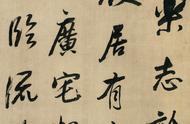 樂志論
使居有
廣宅
臨流